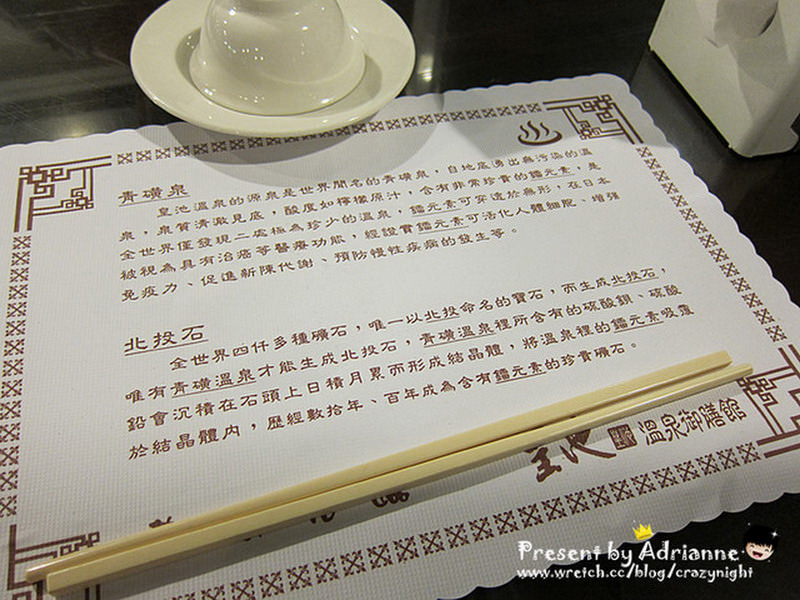 青磺泉
皇池溫泉的源泉是世界聞名的青磺泉，自地底湧出無污染的溫
泉，泉質清澈見底，酸度如檸檬原汁，含有非常珍貴的鐳元素，是
全世界僅發現二處極為珍少的溫泉，鐳元素可穿透於無形，在日本
被視為具有治癌等醫療功能，經證實鐳元素可活化人體細胞、增強
免疫力、促進新陳代謝、預防慢性疾病的發生等。
北投石
全世界四仟多種礦石，唯一以北投命名的寶石，而生成北投石，
唯有青磺溫泉才能生成北投石，青磺溫泉裡所含有的硫酸鋇、硫酸
鉛會沉積在石頭上日積月累而形成結晶體，將溫泉裡的鐳元素吸靈
於結晶體內，歷經數拾年、百年成為含有鐳元素的珍貴礦石。
皇池 溫泉御膳館
Present by Adrianne
www.wretch.cc/blog/crazynight